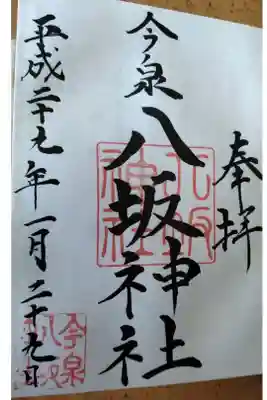 奉拝
今泉
八坂神社
平成二十九年一月二十九日
八坂神社
今泉八坂神社